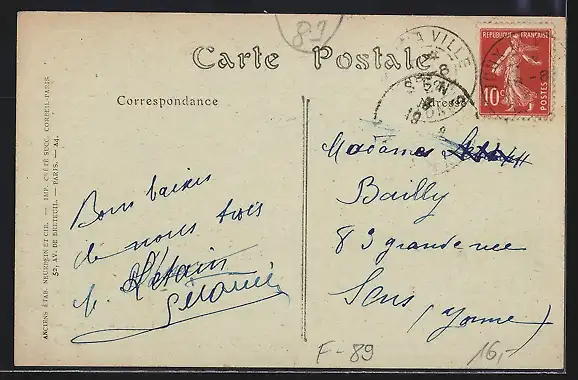 89
Carte Postale
Correspondance
Adresse
REPUBLIQUE FRANÇAISE
10c
POSTES
LA VILLE
Madame
Bailly
83 grande rue
Sens (Yonne)
Bons baisers
de nous trois
ANCIENS ÉTAB. NEURDEIN ET CIE. — IMP. CRÉTÉ SUCC. CORBEIL-PARIS
52, AV. DE BRETEUIL. — PARIS. — A4.
F-89
16,-